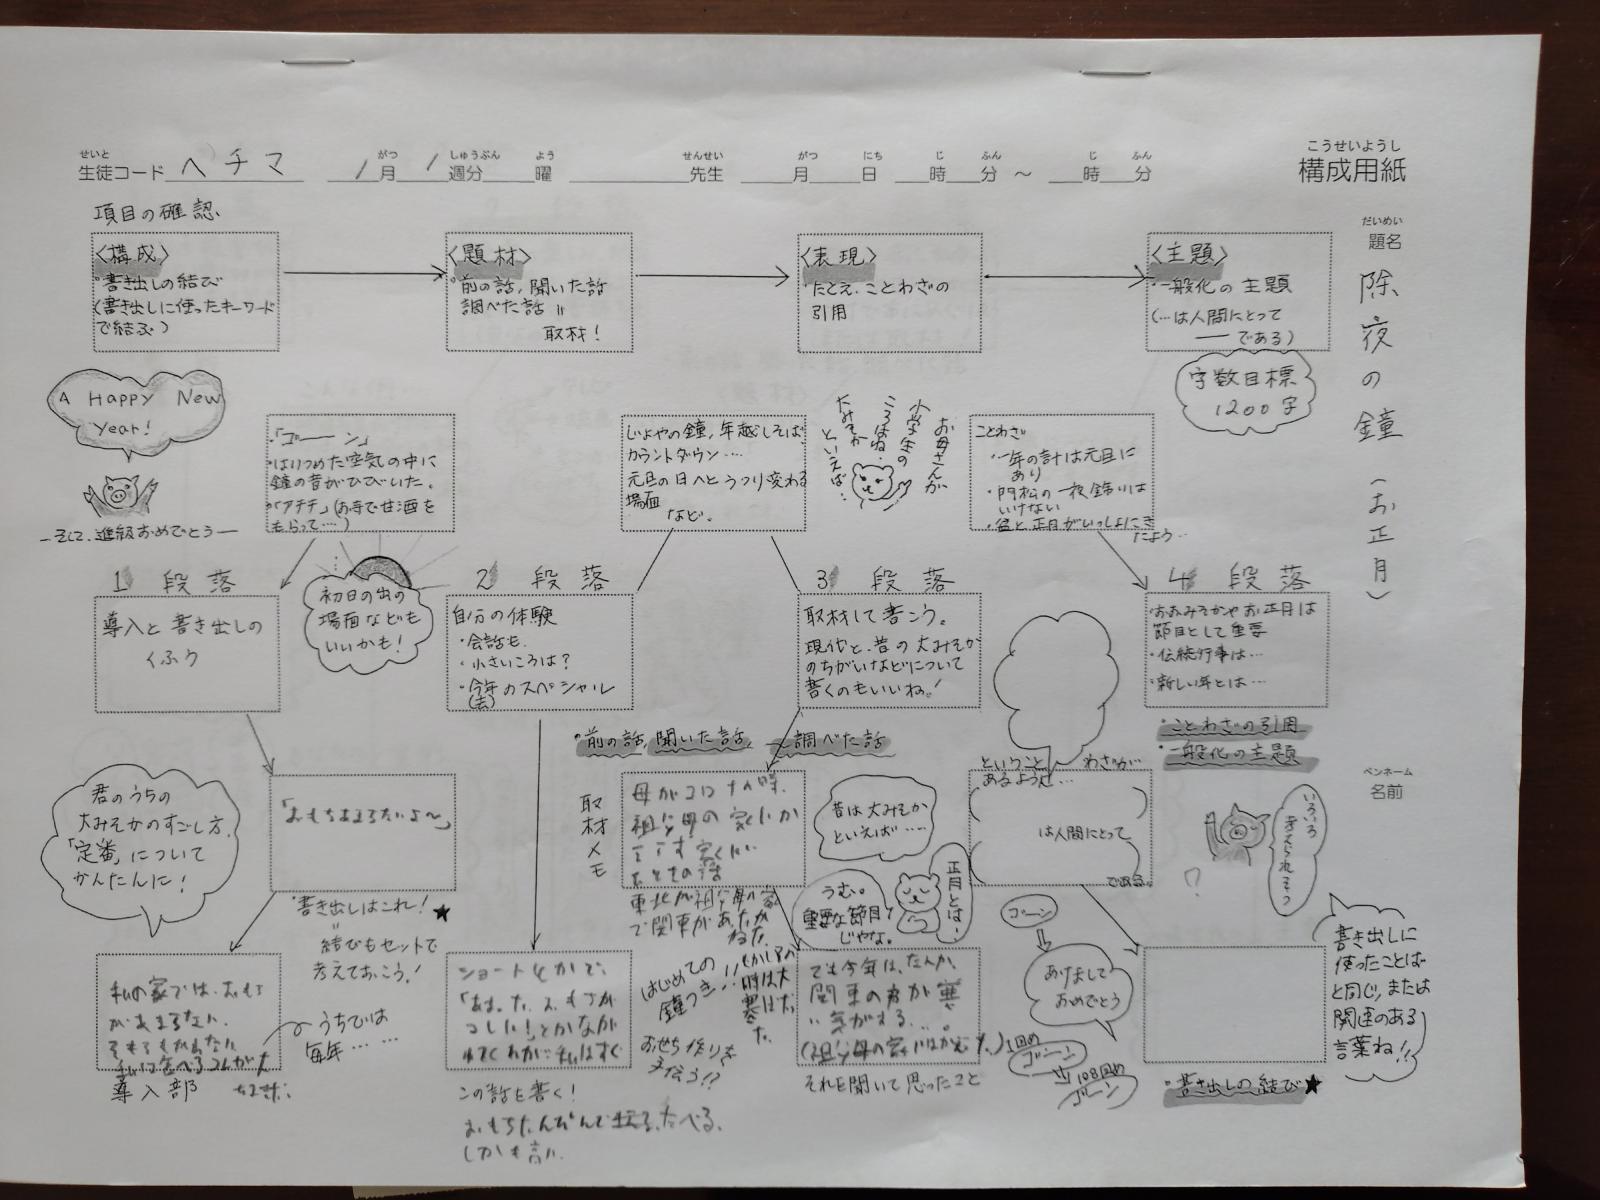 こうせいようし
構成用紙
せいと がつ しゅうぶん よう せんせい がつ にち じ ふん じ ふん
生徒コード ヘチマ / 月 / 週分 曜 先生 月 日 時 分 ～ 時 分
だいめい
題名
除夜の鐘(お正月)
ペンネーム
名前
項目の確認
〈構成〉
・書き出しの結び
(書き出しに使ったキーワード
で結ぶ)
〈題材〉
・前の話,聞いた話
調べた話 〃
取材!
〈表現〉
・たとえ.ことわざの
引用
〈主題〉
・一般化の主題
(…は人間にとって
―である)
字数目標
1200字
A Happy New
year!
―そして、進級おめでとう―
・「ゴーーン」
・はりつめた空気の中に
鐘の音がひびいた。
・「アチチ」(お寺で甘酒を
もらって…)
じょやの鐘,年越しそば,
カウントダウン….
元旦の日へとうつり変わる
場面
など。
お母さんが
小学生の
ころはね…
といえば…
ことわざ
・一年の計は元旦に
あり
・門松の一夜飾りは
いけない
・盆と正月がいっしょにき
たよう…
1 段落
導入と書き出しの
くふう
初日の出の
場面なども
いいかも!
2 段落
自分の体験
・会話も.
・小さいころは?
・今年のスペシャル
(去)
3 段落
取材して書こう。
現代と、昔の大みそか
のちがいなどについて
書くのもいいね!
4 段落
・おおみそかやお正月は
節目として重要
・伝統行事は…
・新しい年とは…
・ことわざの引用
・一般化の主題
・前の話,聞いた話, 調べた話
君のうちの
大みそかのすごし方.
「定番」について
かんたんに!
・書き出しはこれ!★
〃
結びもセットで
考えておこう!
取材メモ
祖父母の家
昔は大みそか
といえば……
ということわざが
あるように…
は人間にとって
である。
いろいろ
考えられそう
?
正月とは…
うむ。
重要な節目
じゃな。
私の家では、おもち
があまらない。
うちでは
毎年……
導入部
この話を書く!
はじめての
鐘つき!!
おせち作りを
手伝う!?
でも今年は、なんか、
関東の方が寒
い気がする…。
それを聞いて思ったこと
ゴーン
あけまして
おめでとう
1回め
ゴーン
108回め
ゴーン
・書き出しの結び★
書き出しに
使ったことば
と同じ,または
関連のある
言葉ね!!